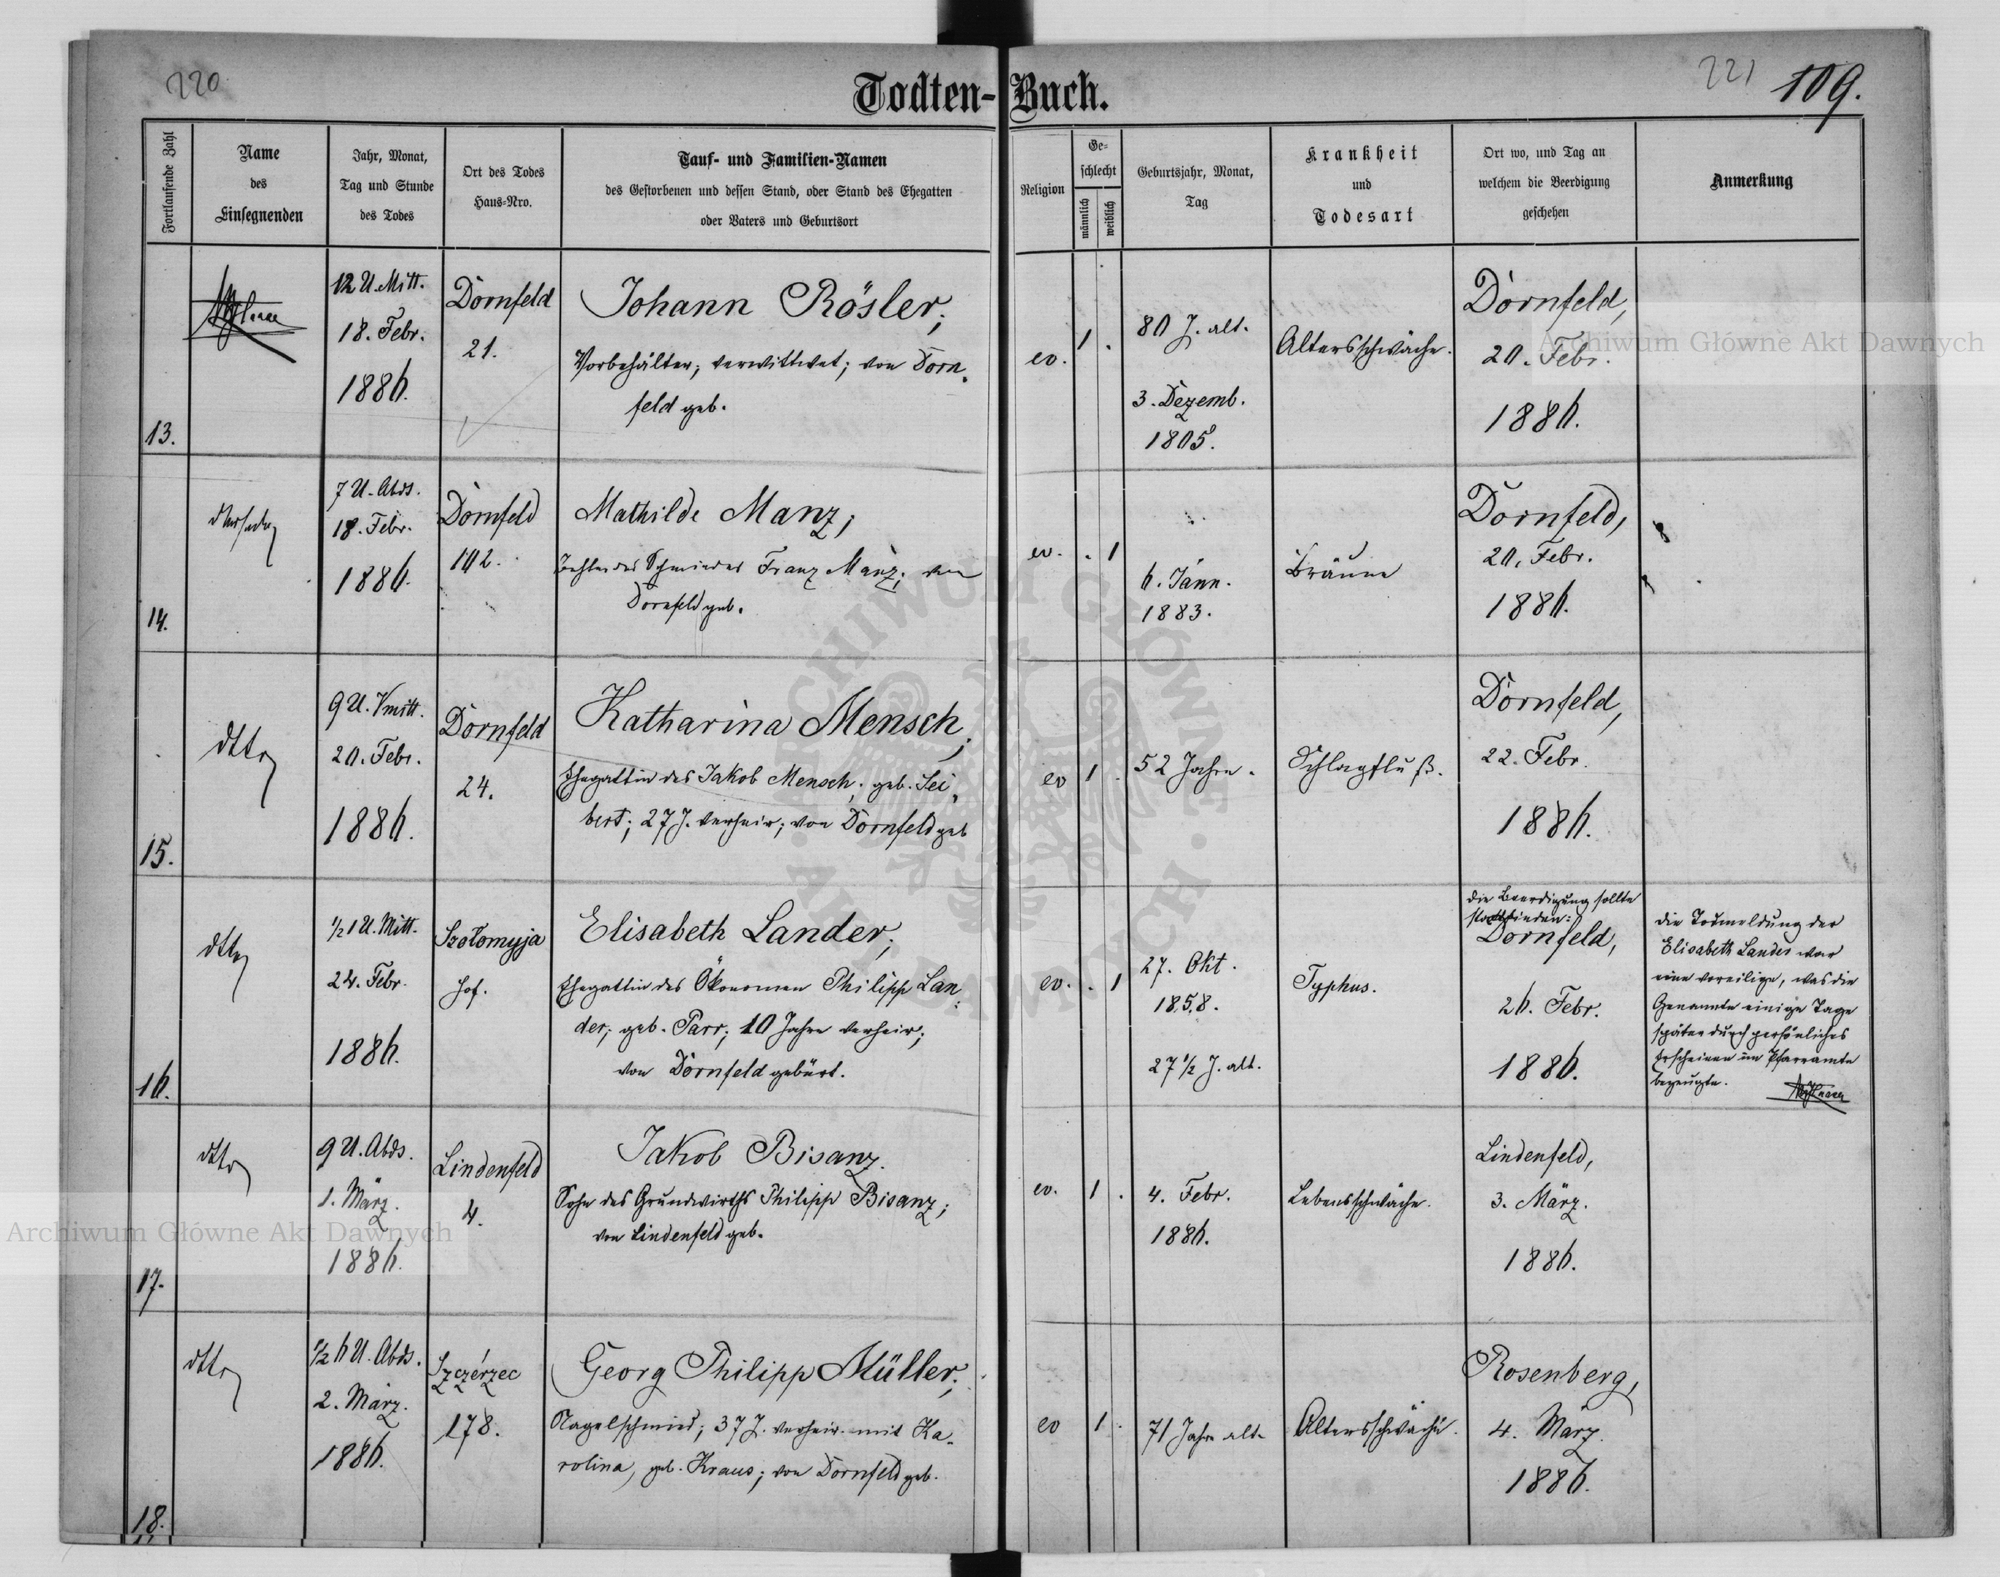 220
221
109.
Todten-Buch.
Fortlaufende Zahl
Name
des
Einsegnenden
Jahr, Monat,
Tag und Stunde
des Todes
Ort des Todes
Haus-Nro.
Tauf- und Familien-Namen
des Gestorbenen und dessen Stand, oder Stand des Ehegatten
oder Vaters und Geburtsort
Religion
Ge-
schlecht
männlich
weiblich
Geburtsjahr, Monat,
Tag
Krankheit
und
Todesart
Ort wo, und Tag an
welchem die Beerdigung
geschehen
Anmerkung
13.
12 U. Mitt.
18. Febr.
1886.
Dornfeld
21.
Johann Rösler,
Vorbehälter; verwittwet; von Dorn-
feld geb.
ev.
1
.
80 J. alt.
3. Dezemb.
1805.
Altersschwäche.
Dornfeld,
20. Febr.
1886.
14.
derselbe
7 U. Abds.
18. Febr.
1886.
Dornfeld
102.
Mathilde Manz,
Tochter des Schmiedes Franz Manz; von
Dornfeld geb.
ev.
.
1
6. Jänn.
1883.
Bräune
Dornfeld,
20. Febr.
1886.
15.
dtto
9 U. Vmitt.
20. Febr.
1886.
Dornfeld
24.
Katharina Mensch,
Ehegattin des Jakob Mensch; geb. Sei-
bert; 27 J. verheir; von Dornfeld geb
ev
1
.
52 Jahre.
Schlagfluß.
Dornfeld,
22. Febr.
1886.
16.
dtto
1/2 1 U. Mitt.
24. Febr.
1886.
Szołomyja
Hof.
Elisabeth Lander,
Ehegattin des Ökonomen Philipp Lan-
der; geb. Parr; 10 Jahre verheir;
von Dornfeld gebürt.
ev.
.
1
27. Okt.
1858.
27 1/2 J. alt.
Typhus.
die Beerdigung sollte
stattfinden:
Dornfeld,
26. Febr.
1886.
Die Todmeldung der
Elisabeth Lander war
eine voreilige, was die
Genannte einige Tage
später durch persönliches
Erscheinen im Pfarramte
bezeugte.
17.
dtto
9 U. Abds.
1. März.
1886.
Lindenfeld
4.
Jakob Bisanz.
Sohn des Grundwirths Philipp Bisanz;
von Lindenfeld geb.
ev.
1
.
4. Febr.
1886.
Lebensschwäche.
Lindenfeld,
3. März.
1886.
18.
dtto
1/2 6 U. Abds.
2. März.
1886.
Szczérzec
178.
Georg Philipp Müller,
Nagelschmied; 37 J. verheir. mit Ka-
rolina, geb. Kraus; von Dornfeld geb.
ev
1
.
71 Jahre alt
Altersschwäche.
Rosenberg,
4. März.
1886.
Archiwum Główne Akt Dawnych
Archiwum Główne Akt Dawnych
ARCHIWUM GŁÓWNE AKT DAWNYCH